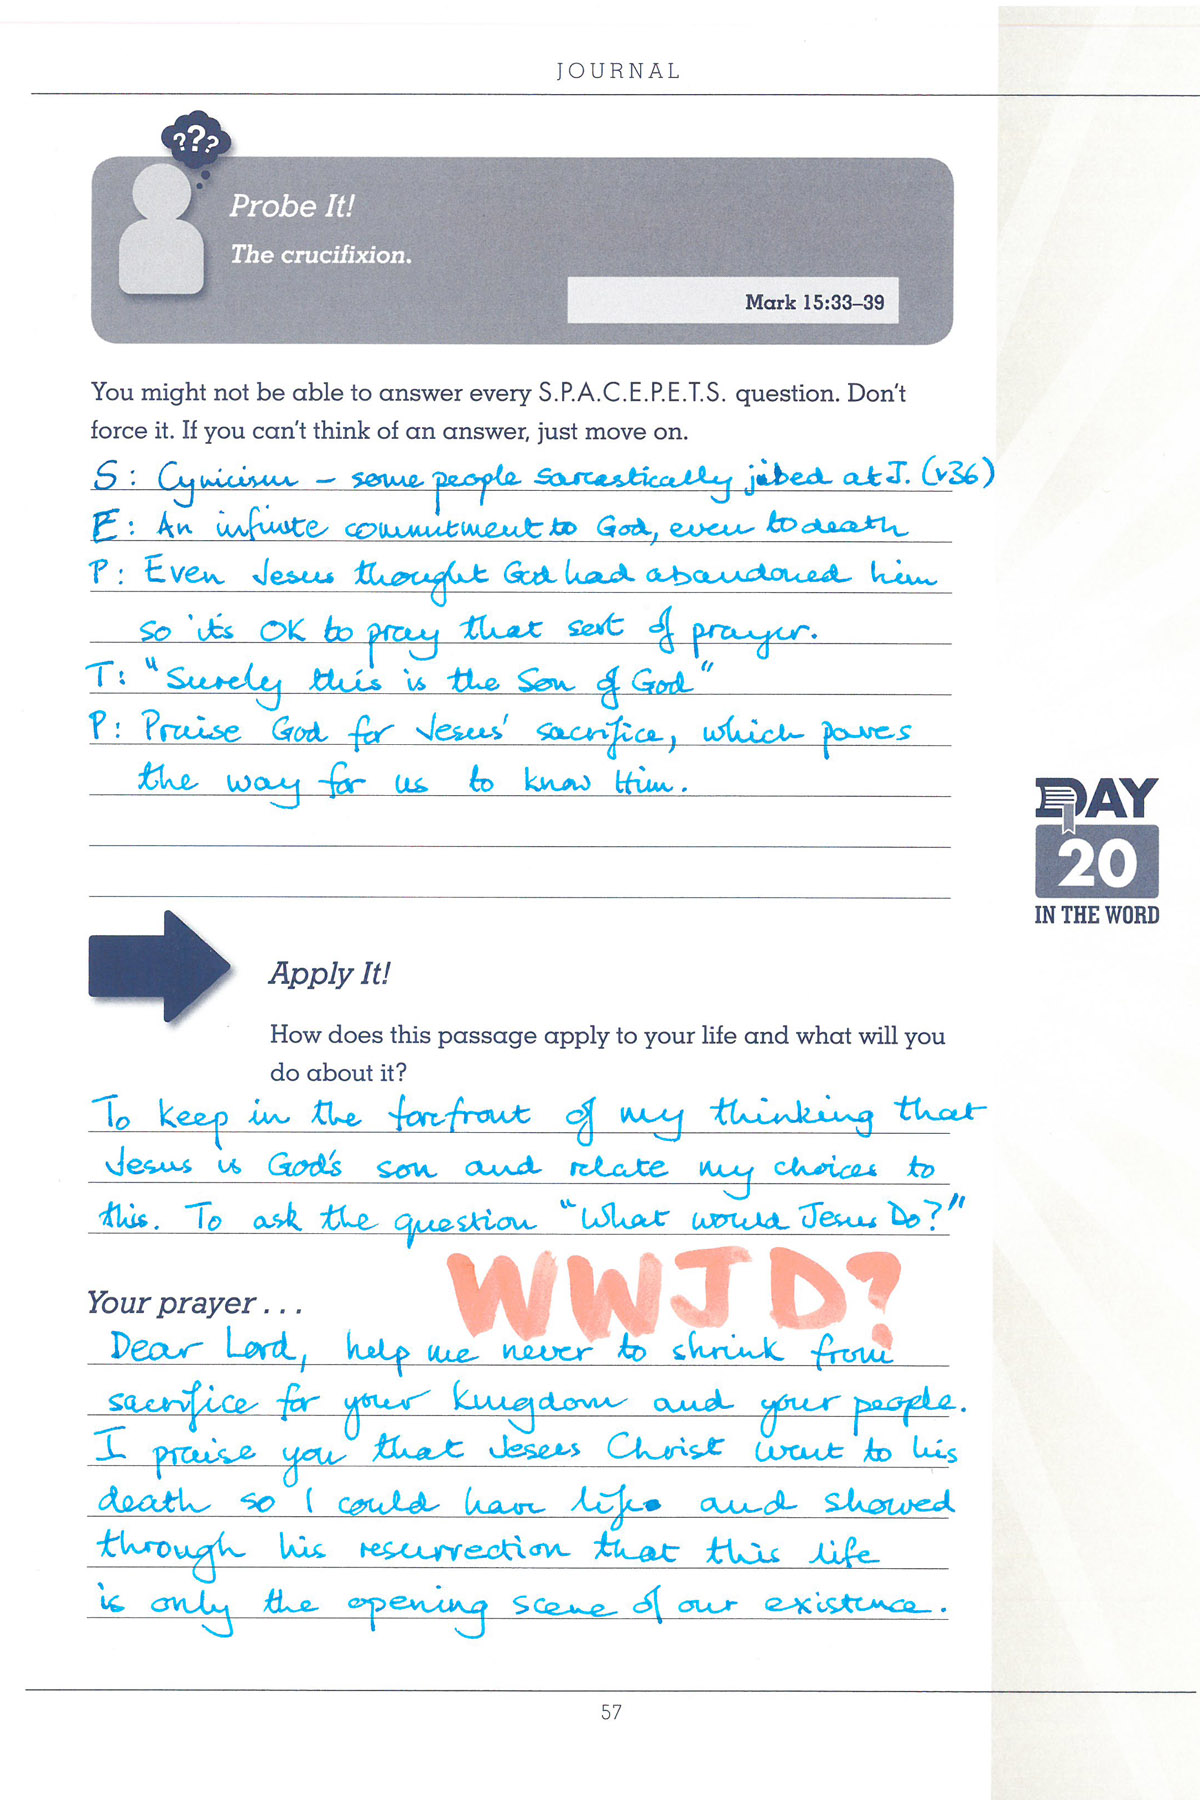 JOURNAL
???
Probe It!
The crucifixion.
Mark 15:33–39
You might not be able to answer every S.P.A.C.E.P.E.T.S. question. Don't
force it. If you can't think of an answer, just move on.
S: Cynicism – some people sarcastically jibed at J. (v36)
E: An infinite commitment to God, even to death
P: Even Jesus thought God had abandoned him
so it's OK to pray that sort of prayer.
T: "Surely this is the Son of God"
P: Praise God for Jesus' sacrifice, which paves
the way for us to know Him.
DAY
20
IN THE WORD
Apply It!
How does this passage apply to your life and what will you
do about it?
To keep in the forefront of my thinking that
Jesus is God's son and relate my choices to
this. To ask the question "What would Jesus Do?"
WWJD?
Your prayer . . .
Dear Lord, help me never to shrink from
sacrifice for your kingdom and your people.
I praise you that Jesus Christ went to his
death so I could have life and showed
through his resurrection that this life
is only the opening scene of our existence.
57